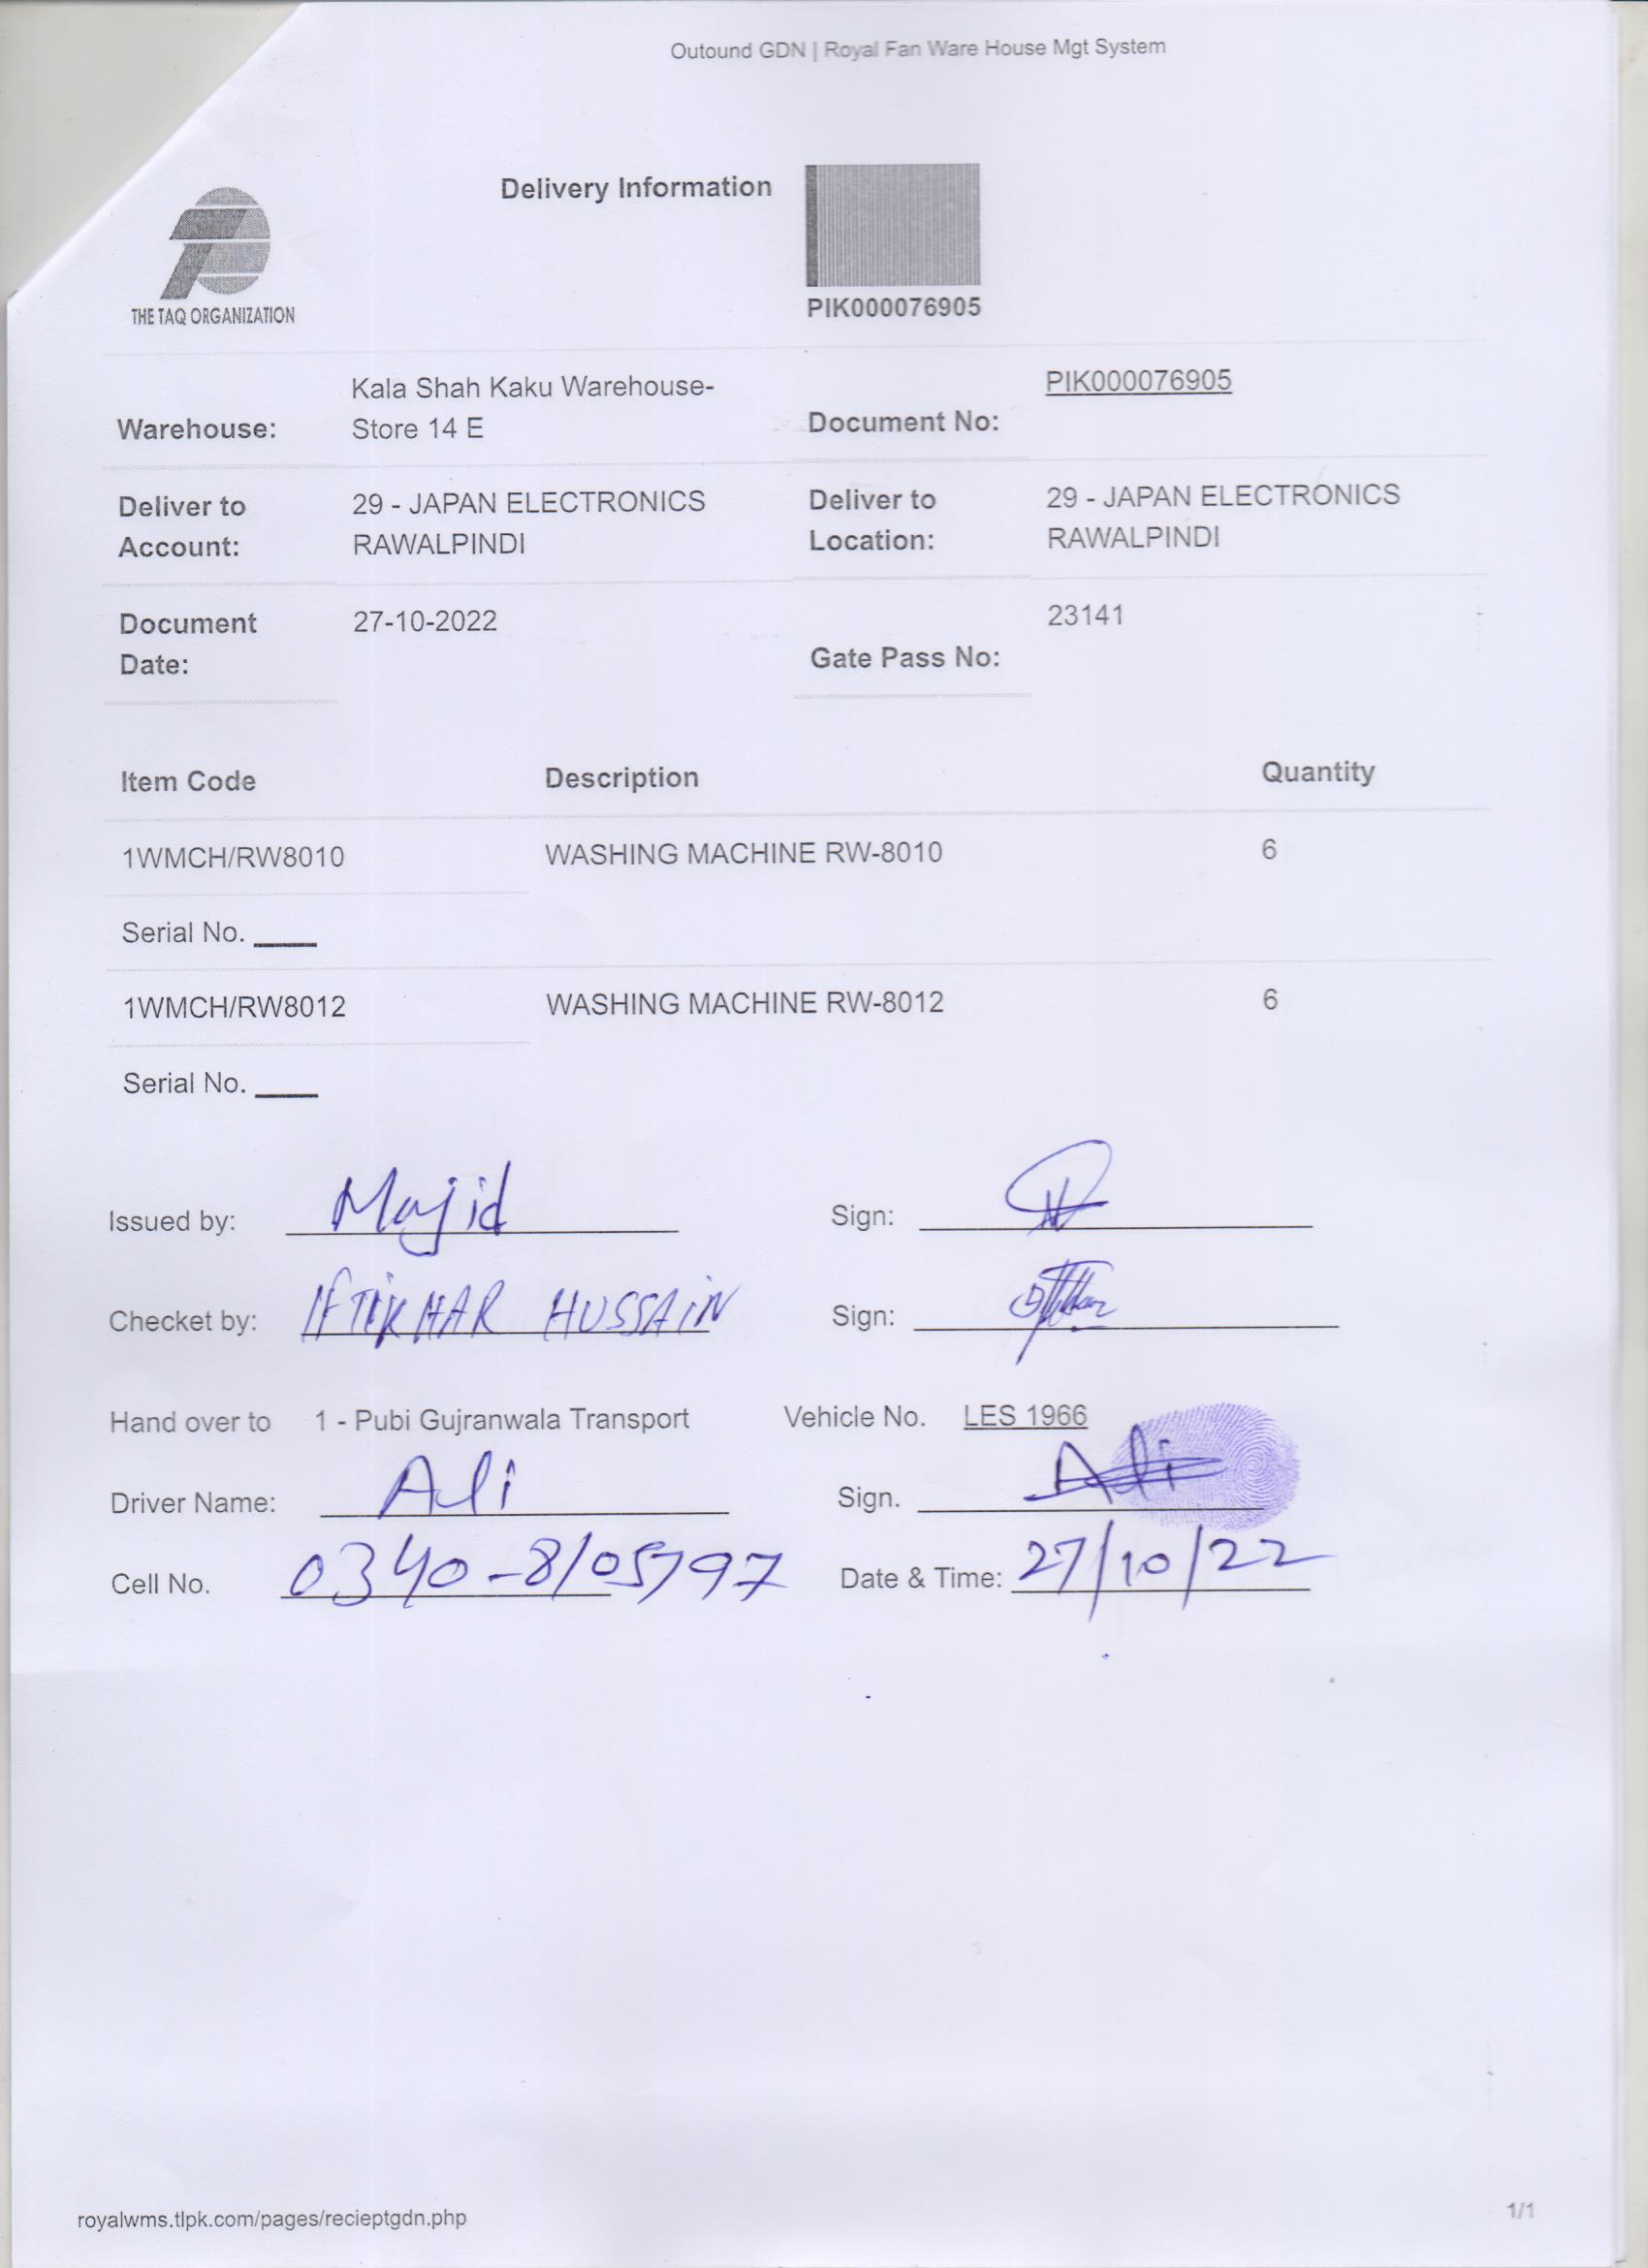 Outound GDN | Royal Fan Ware House Mgt System
Delivery Information
THE TAQ ORGANIZATION
PIK000076905
Warehouse: Kala Shah Kaku Warehouse-
Store 14 E
Document No: PIK000076905
Deliver to Account: 29 - JAPAN ELECTRONICS
RAWALPINDI
Deliver to Location: 29 - JAPAN ELECTRONICS
RAWALPINDI
Document Date: 27-10-2022
Gate Pass No: 23141
Item Code Description Quantity
1WMCH/RW8010 WASHING MACHINE RW-8010 6
Serial No. ____
1WMCH/RW8012 WASHING MACHINE RW-8012 6
Serial No. ____
Issued by: Majid Sign:
Checket by: IFTIKHAR HUSSAIN Sign:
Hand over to 1 - Pubi Gujranwala Transport Vehicle No. LES 1966
Driver Name: Ali Sign. Ali
Cell No. 0340-8105797 Date & Time: 27/10/22
royalwms.tlpk.com/pages/recieptgdn.php 1/1